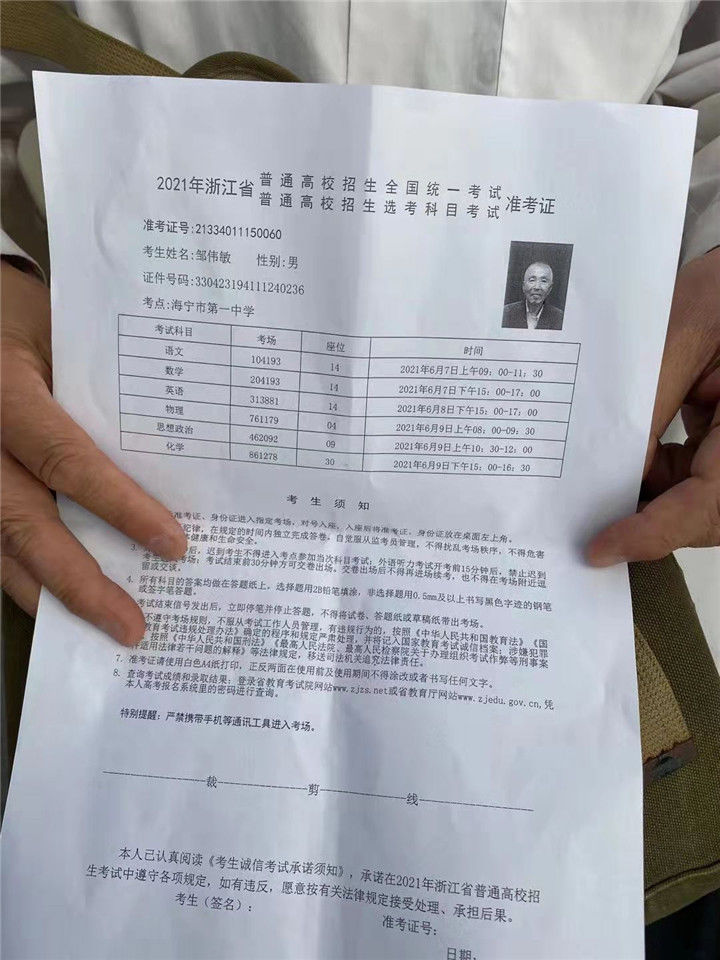 2021年浙江省普通高校招生全国统一考试
普通高校招生选考科目考试准考证
准考证号:21334011150060
考生姓名:邹伟敏 性别:男
证件号码:330423194111240236
考点:海宁市第一中学
考试科目 考场 座位 时间
语文 104193 14 2021年6月7日上午09:00-11:30
数学 204193 14 2021年6月7日下午15:00-17:00
英语 313881 14 2021年6月8日下午15:00-17:00
物理 761179 04 2021年6月9日上午08:00-09:30
思想政治 462092 09 2021年6月9日上午10:30-12:00
化学 861278 30 2021年6月9日下午15:00-16:30
考生须知
准考证、身份证进入指定考场，对号入座，入座后将准考证，身份证放在桌面左上角。
纪律，在规定的时间内独立完成答卷。自觉服从监考员管理，不得扰乱考场秩序，不得危害
体健康和生命安全。
3. 后，迟到考生不得进入考点参加当次科目考试；外语听力考试开考前15分钟后，禁止迟到
考场；考试结束前30分钟方可交卷出场。交卷出场后不得再进场续考，也不得在考场附近逗
留或交谈。
4. 所有科目的答案均做在答题纸上，选择题用2B铅笔填涂，非选择题用0.5mm及以上书写黑色字迹的钢笔
或签字笔答题。
考试结束信号发出后，立即停笔并停止答题，不得将试卷、答题纸或草稿纸带出考场。
不遵守考场规则，不服从考试工作人员管理，有违规行为的，按照《中华人民共和国教育法》《国
教育考试违规处理办法》确定的程序和规定严肃处理，并将记入国家教育考试诚信档案；涉嫌犯罪
，按照《中华人民共和国刑法》《最高人民法院、最高人民检察院关于办理组织考试作弊等刑事案
件适用法律若干问题的解释》等法律规定，移送司法机关追究法律责任。
7. 准考证请使用白色A4纸打印，正反两面在使用前及使用期间不得涂改或者书写任何文字。
8. 查询考试成绩和录取结果：登录省教育考试院网站www.zjzs.net或省教育厅网站www.zjedu.gov.cn,凭
本人高考报名系统里的密码进行查询。
特别提醒：严禁携带手机等通讯工具进入考场。
裁 剪 线
本人已认真阅读《考生诚信考试承诺须知》，承诺在2021年浙江省普通高校招
生考试中遵守各项规定，如有违反，愿意按有关法律规定接受处理、承担后果。
考生（签名）： 准考证号：
日期：